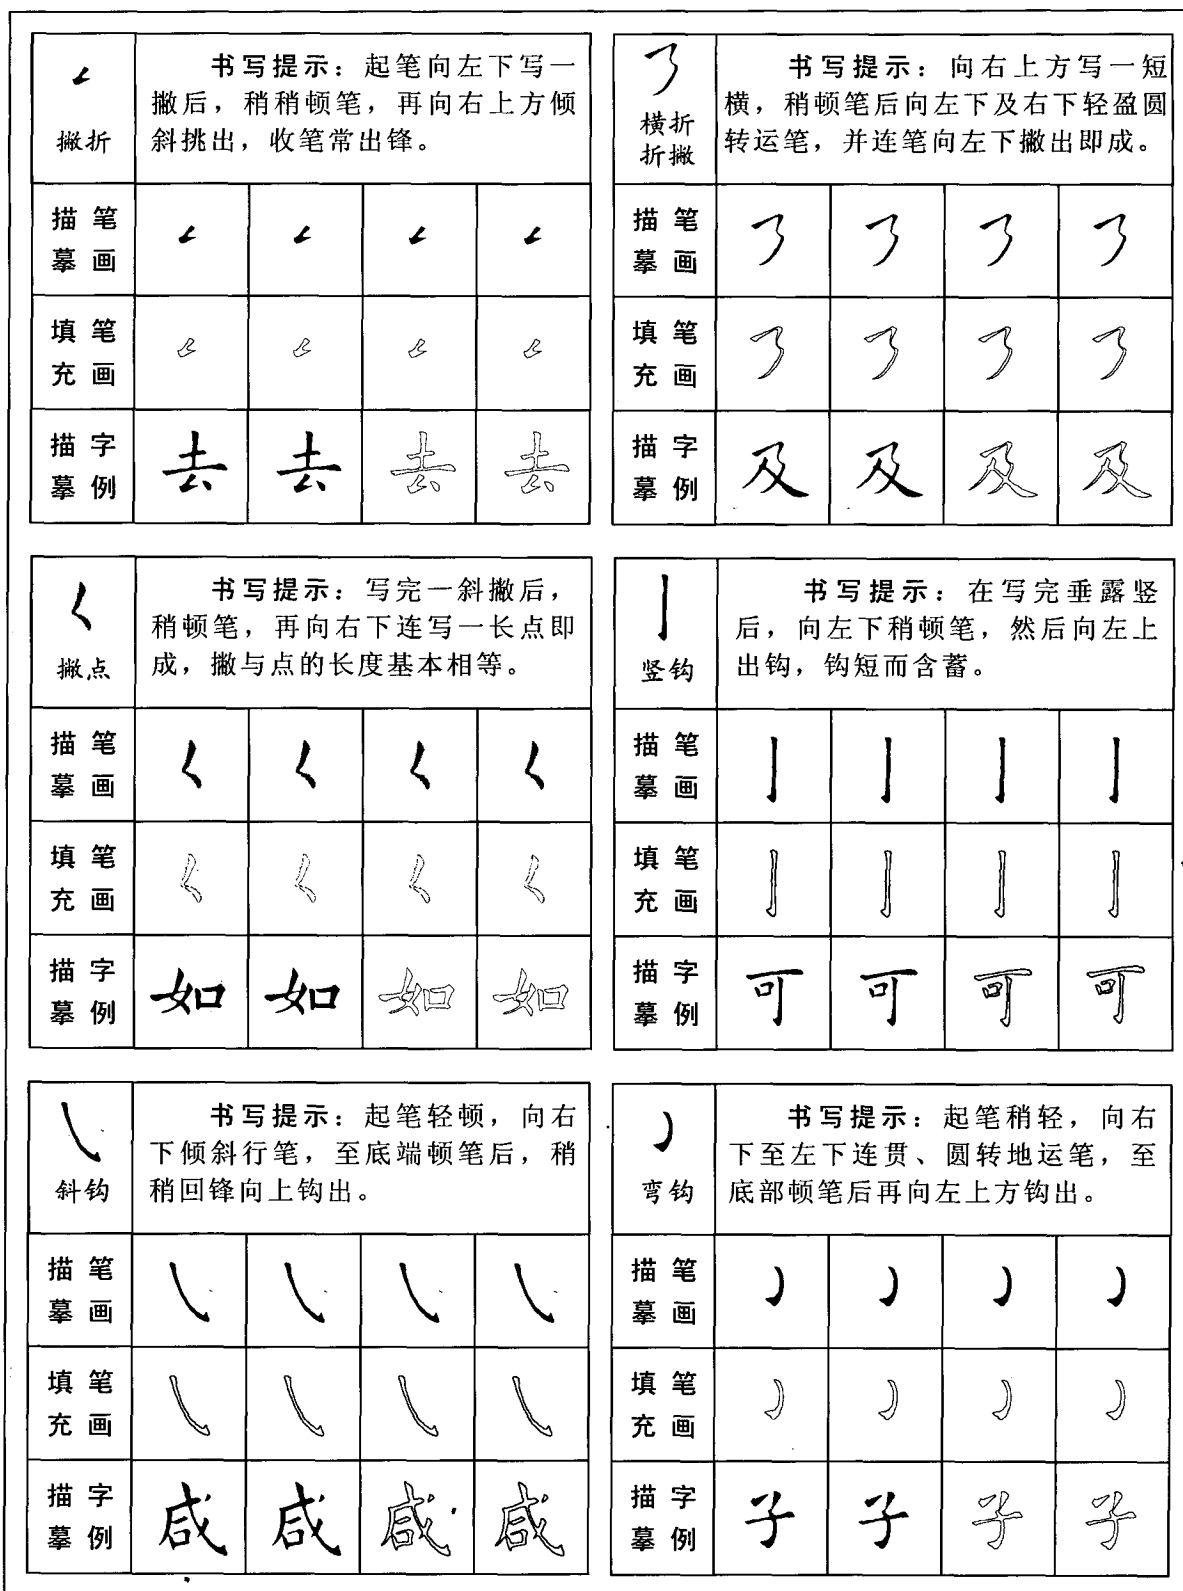 撇折
书写提示：起笔向左下写一
撇后，稍稍顿笔，再向右上方倾
斜挑出，收笔常出锋。
描笔
摹画
填笔
充画
描字
摹例
去 去 去 去
横折
折撇
书写提示：向右上方写一短
横，稍顿笔后向左下及右下轻盈圆
转运笔，并连笔向左下撇出即成。
描笔
摹画
填笔
充画
描字
摹例
及 及 及 及
撇点
书写提示：写完一斜撇后，
稍顿笔，再向右下连写一长点即
成，撇与点的长度基本相等。
描笔
摹画
填笔
充画
描字
摹例
如 如 如 如
竖钩
书写提示：在写完垂露竖
后，向左下稍顿笔，然后向左上
出钩，钩短而含蓄。
描笔
摹画
填笔
充画
描字
摹例
可 可 可 可
斜钩
书写提示：起笔轻顿，向右
下倾斜行笔，至底端顿笔后，稍
稍回锋向上钩出。
描笔
摹画
填笔
充画
描字
摹例
咸 咸 咸 咸
弯钩
书写提示：起笔稍轻，向右
下至左下连贯、圆转地运笔，至
底部顿笔后再向左上方钩出。
描笔
摹画
填笔
充画
描字
摹例
子 子 子 子